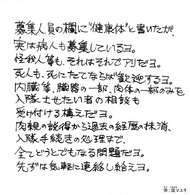 募集人員の欄に"健康体"と書いたが、
実は病人も募集しているヨ。
怪我人等も、それはそれでアリだヨ。
死人も、死にたてならば歓迎するヨ。
内臓等、臓器の一部、肉体の一部のみを
入隊させたい者の相談も
受け付ける構えだヨ。
肉親の説得から過去の経歴の抹消、
入隊手続きの処理まで、
全てどうとでもなる問題だヨ。
先ずは気軽に連絡し給えヨ。